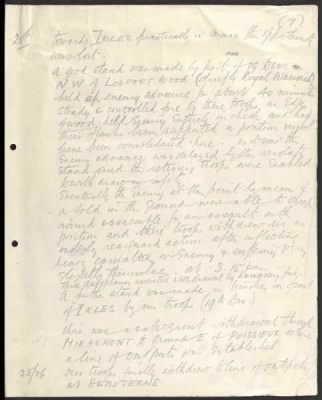 (7)
25th towards IRLES practically in across the
was lost.
A good stand was made by part of 19 Divn in
N.W. of LOUPART WOOD (chiefly Royal Warwicks)
held up enemy advance for about 40 minutes
Steady & controlled fire by these troops, in Edge
of wood, held Enemy Entirely in check and had
their flanks been supported a position might
have been consolidated here - as it was the
Enemy advance was delayed by this
stand and the retiring troops were Enabled
to withdraw in safety.
Eventually the Enemy at this point by means of
a fold in the Ground were able to creep
round assemble for an assault on the
position and these troops withdrew in an
orderly rearguard action after inflicting
heavy casualties on Enemy & suffering very
slightly themselves. at 3.15 pm
This
A further stand was made in trenches in front
of IRLES by our troops (19th Div.)
There was a subsequent withdrawal through
MIRAUMONT to ground E of PUISIEUX where
a line of outposts was Established.
25/26 Our troops finally withdrew to line of outposts
at HEBUTERNE.